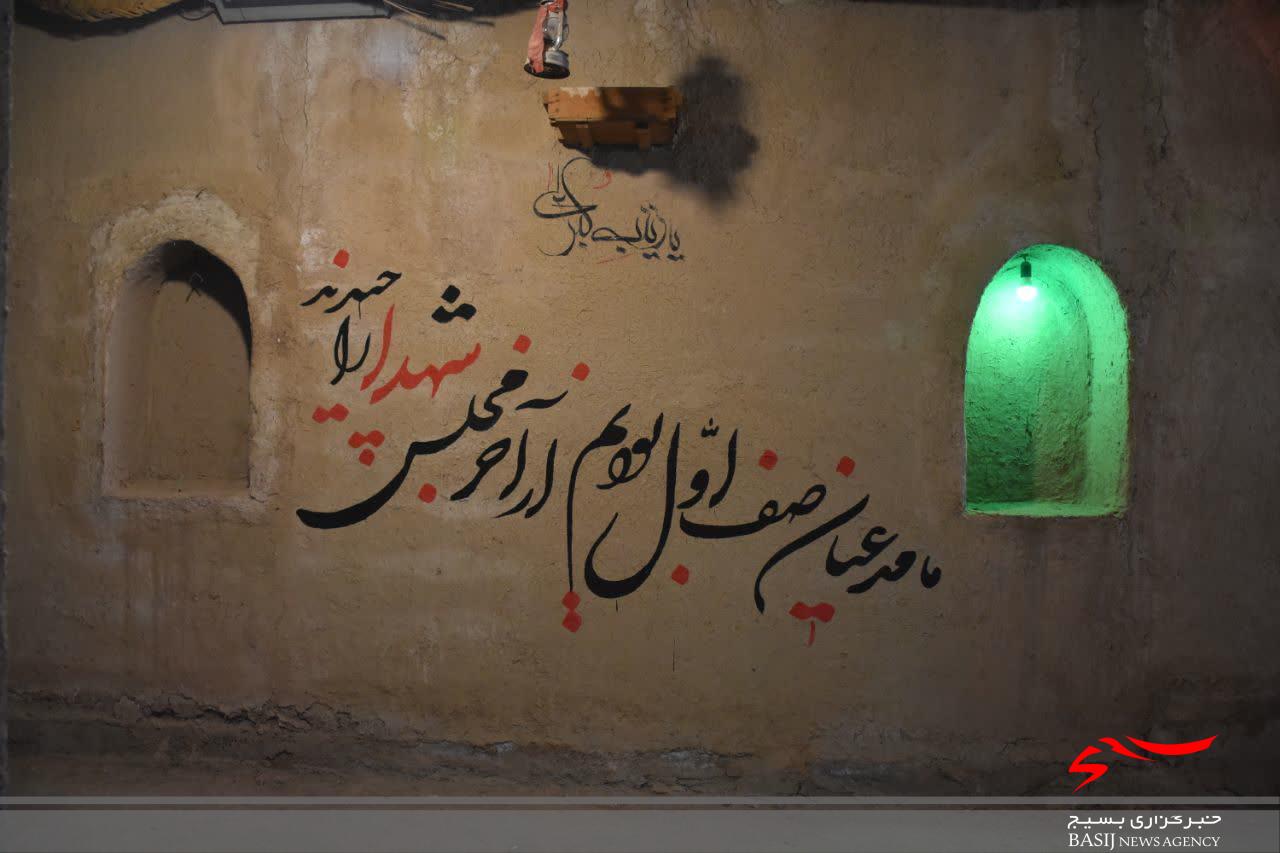 یا زینب کبری
ما مدعیان صف اول بودیم
از آخر مجلس شهدا را چیدند
خبرگزاری بسیج
BASIJ NEWS AGENCY